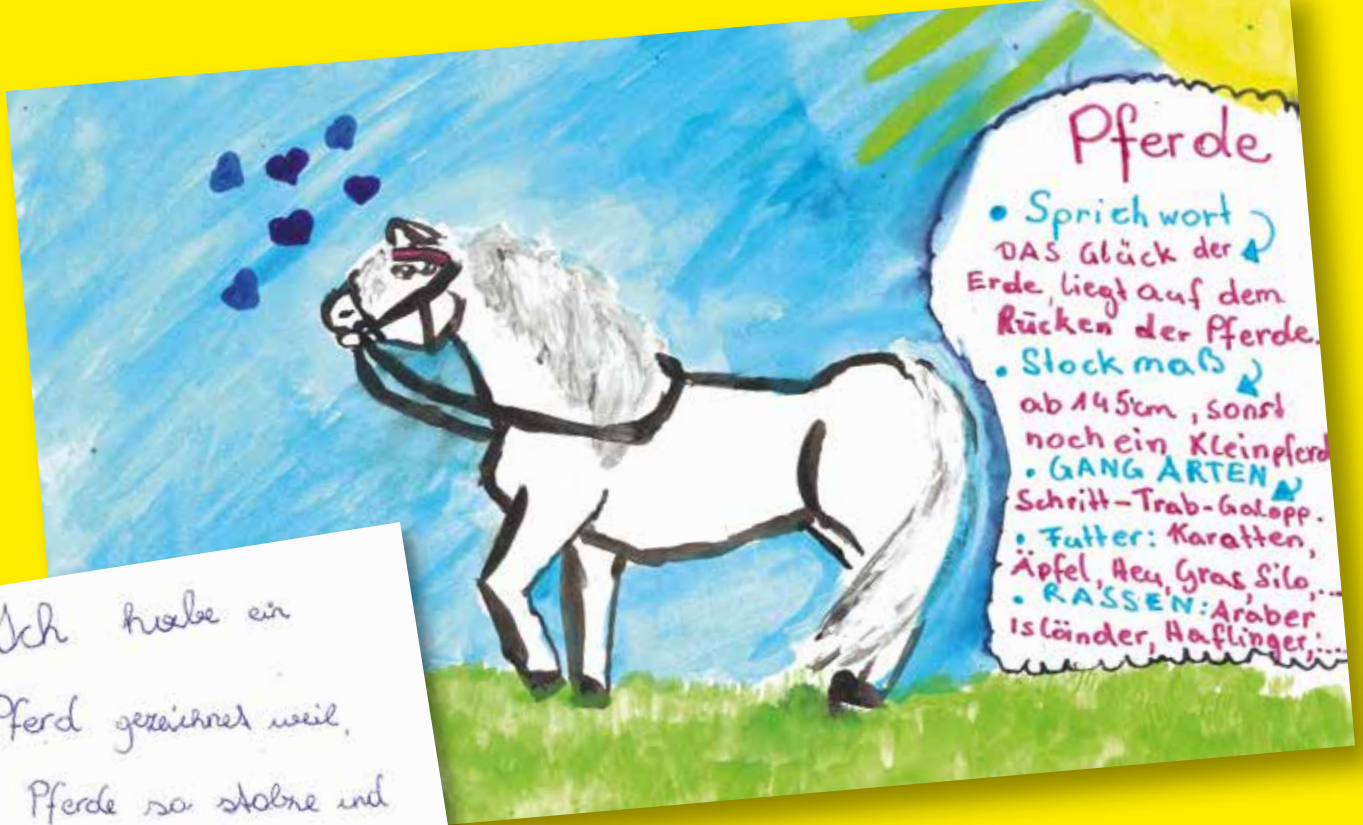 Pferde
• Sprichwort
DAS Glück der
Erde, liegt auf dem
Rücken der Pferde.
• Stockmaß
ab 145cm, sonst
noch ein Kleinpferd
• GANG ARTEN
Schritt-Trab-Galopp.
• Futter: Karatten,
Äpfel, Heu, Gras, Silo,...
• RASSEN: Araber
Isländer, Haflinger,...
Ich habe ein
Pferd gezeichnet weil,
Pferde so stolze und